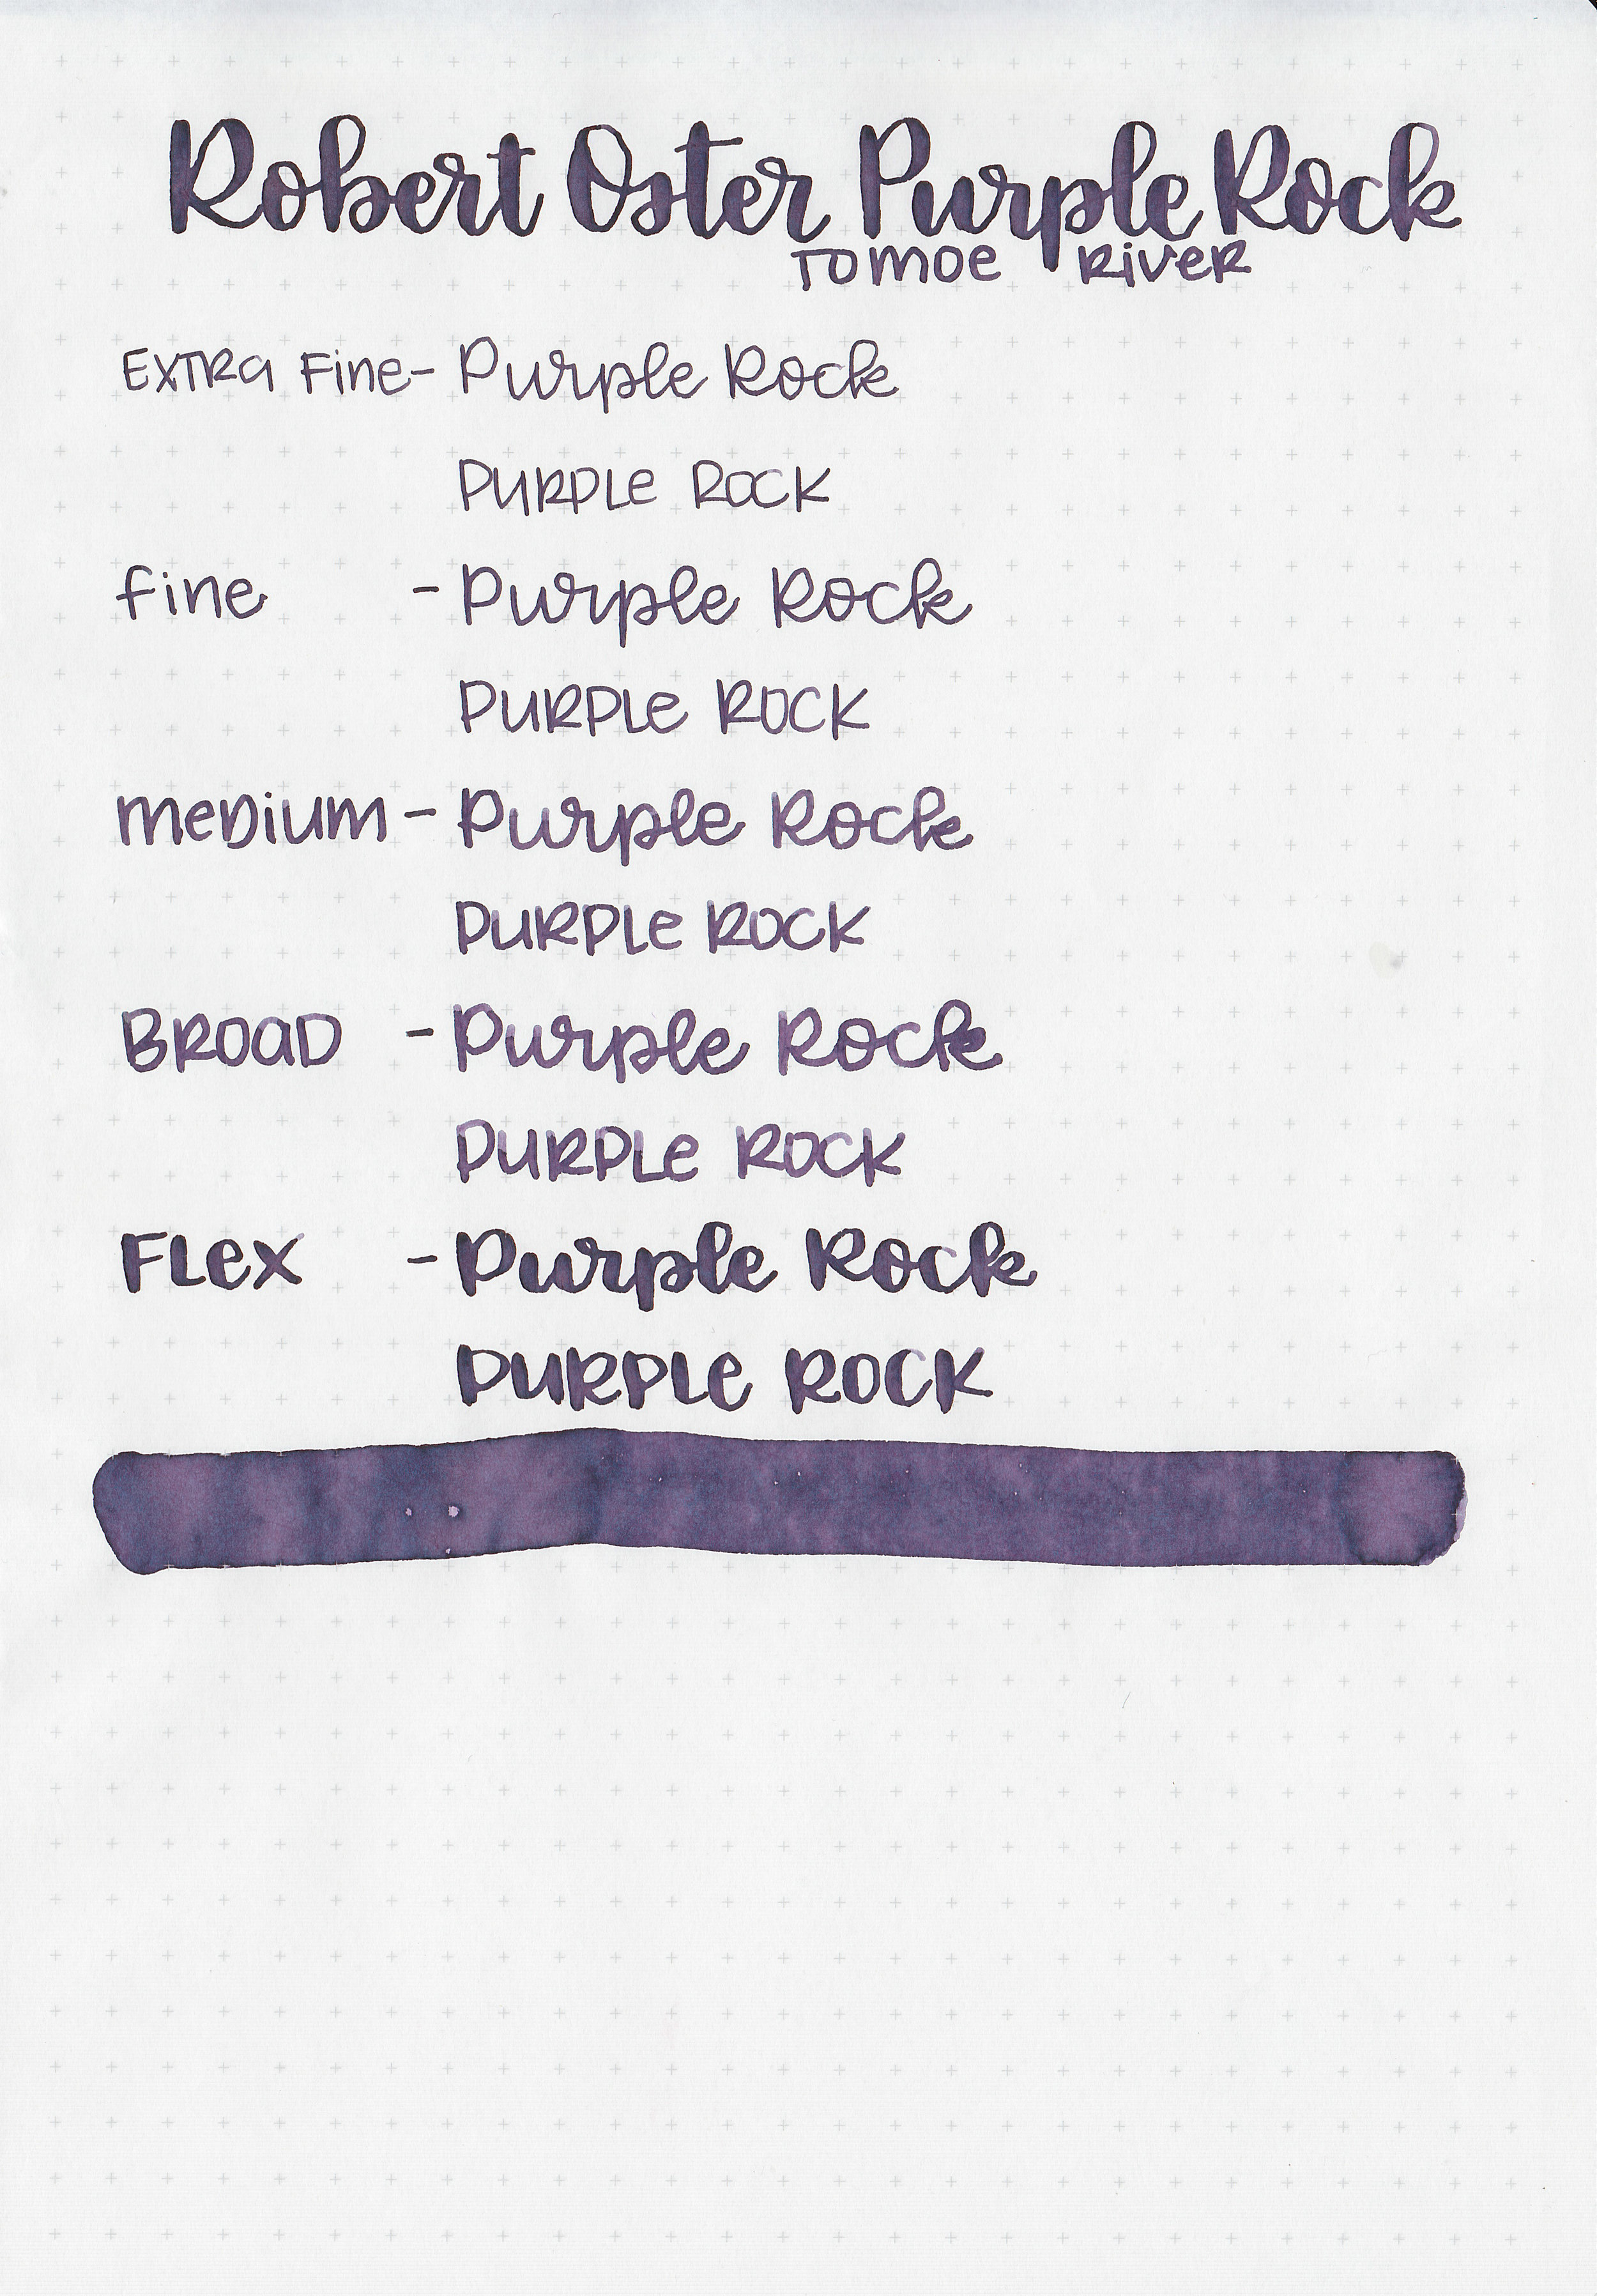 Robert Oster Purple Rock
Tomoe River
Extra Fine- Purple Rock
Purple Rock
Fine - Purple Rock
Purple Rock
Medium - Purple Rock
Purple Rock
Broad - Purple Rock
Purple Rock
Flex - Purple Rock
Purple Rock